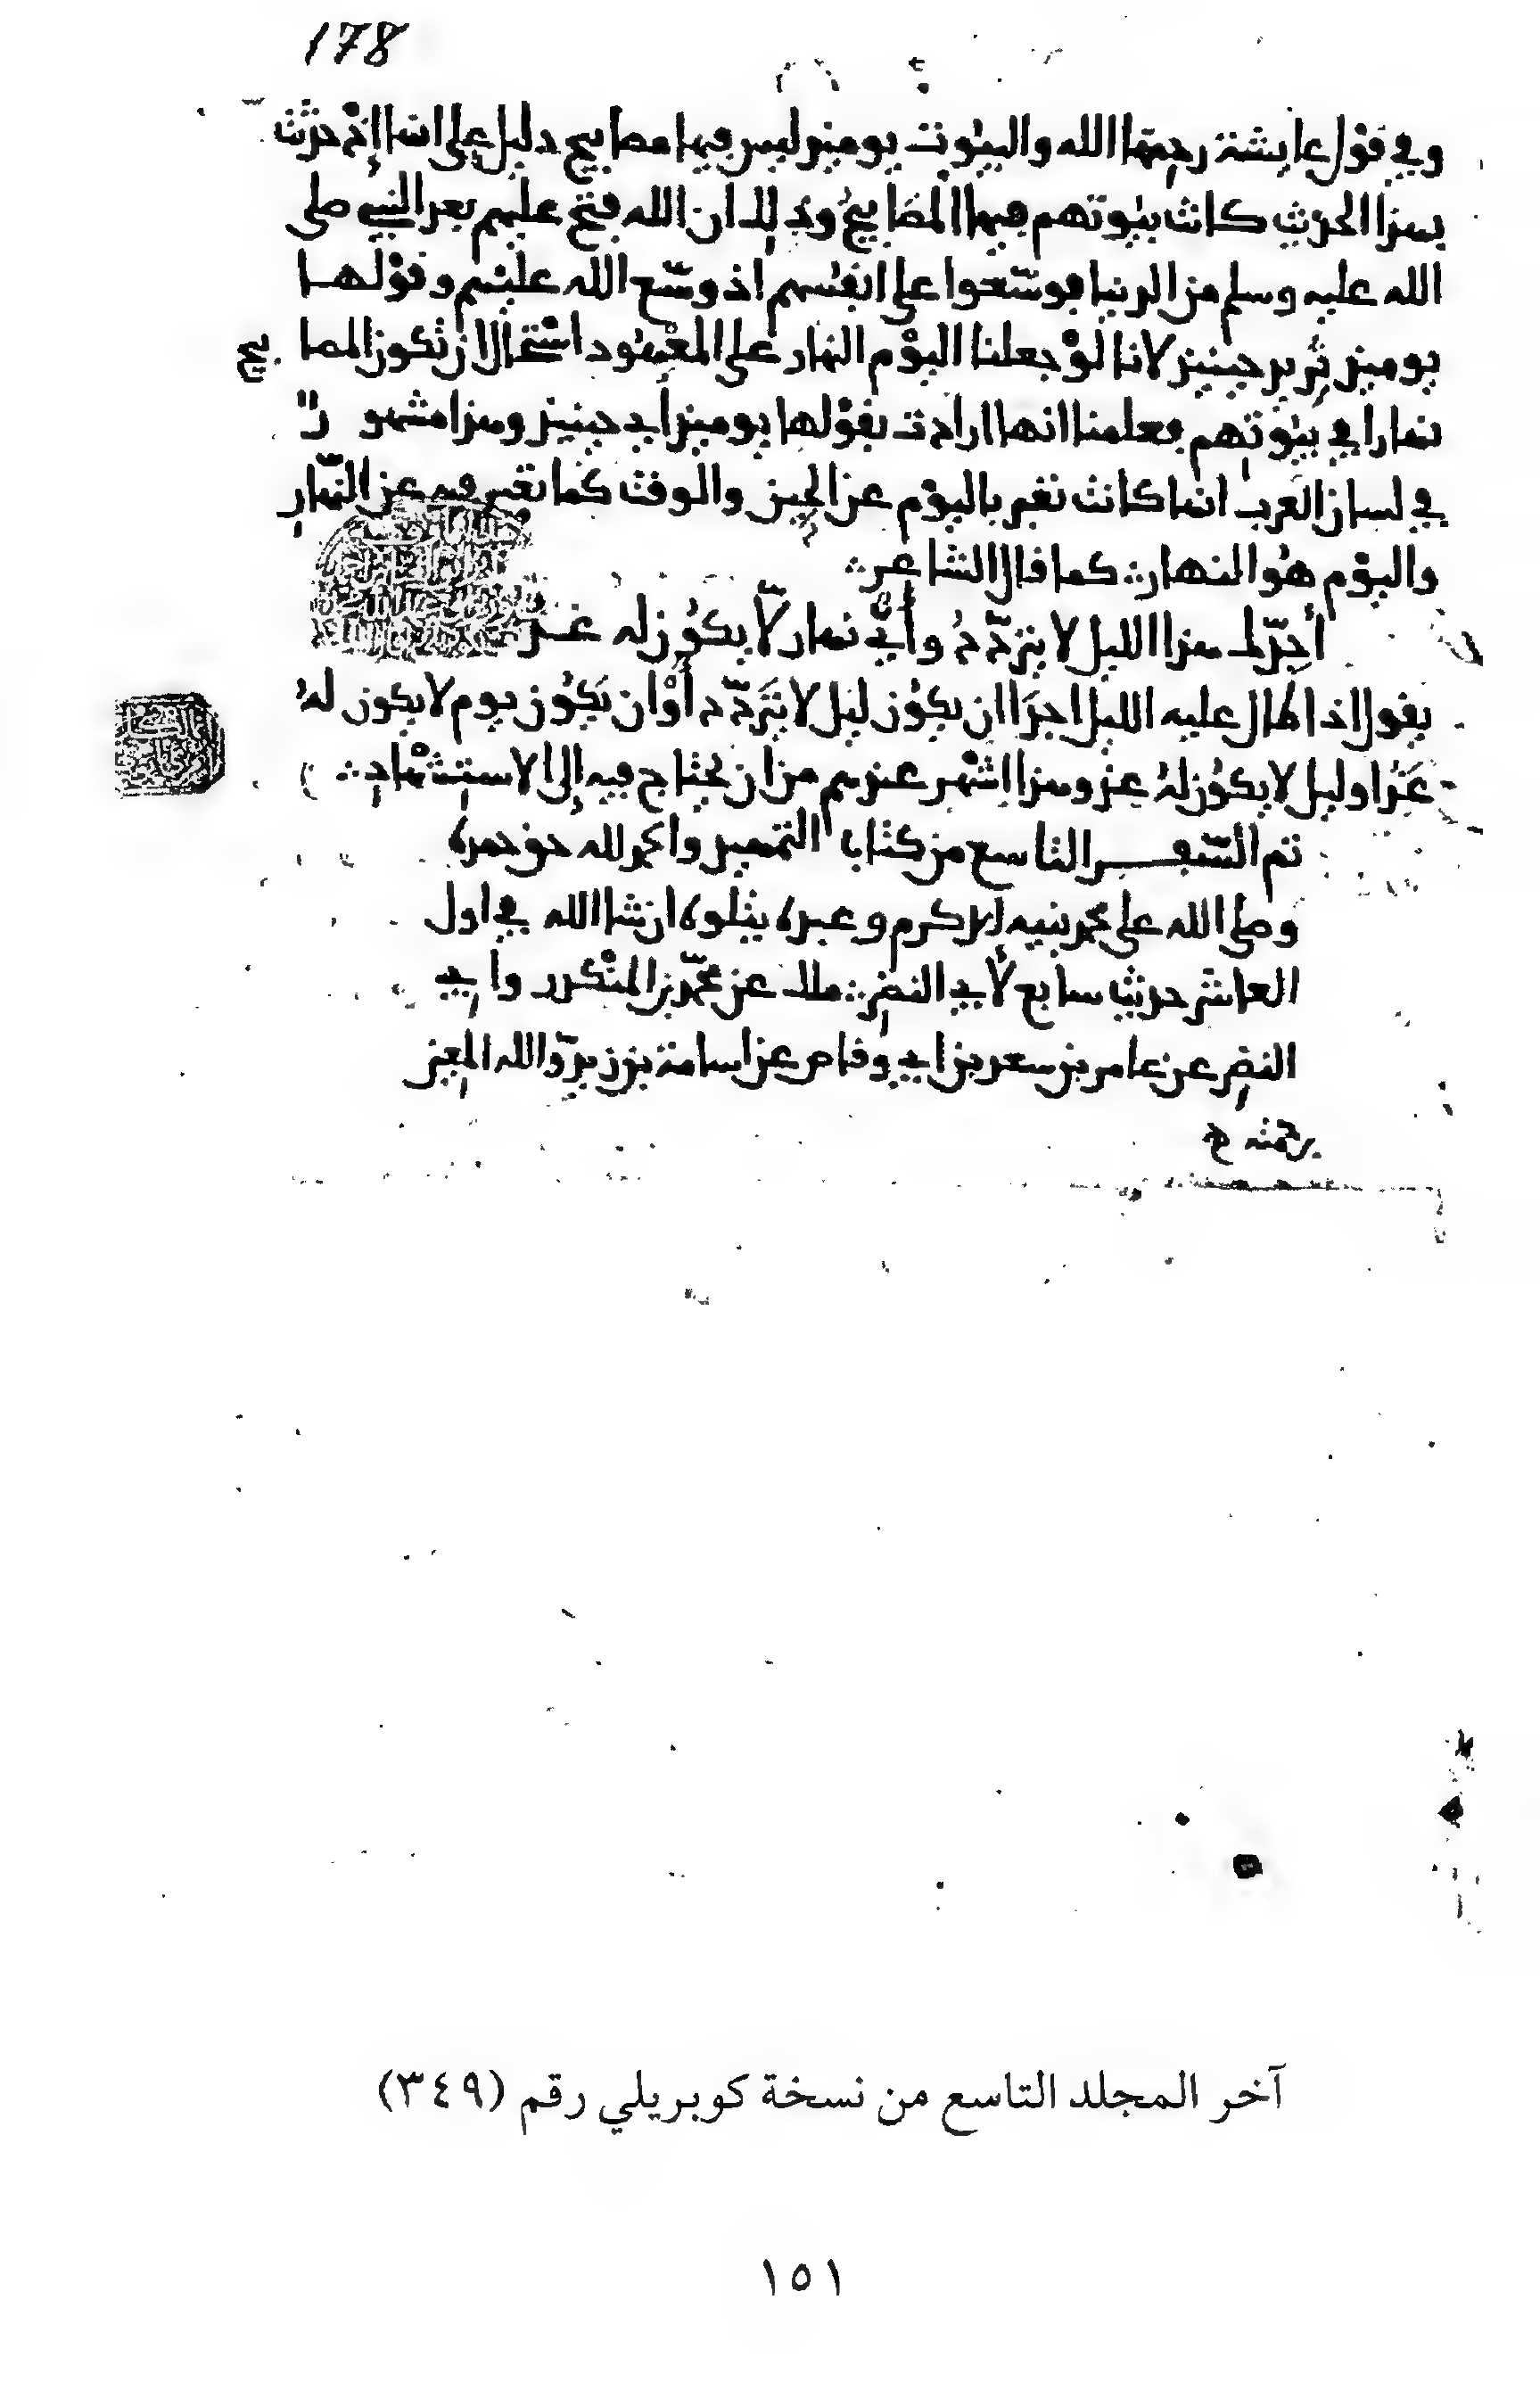 178
وفي قول عايشة رحمها الله والبيوت يوميذ ليس فيها مصابيح دليل على انها اذ حدثت
بهذا الحديث كانت بيوتهم فيها المصابيح وذلك ان الله فتح عليهم بعد النبي صلى
الله عليه وسلم من الدنيا فوسعوا على انفسهم اذ وسع الله عليهم وقولها
يوميذ تريد حينيذ لانا لو جعلنا اليوم النهار على المعهود استحال ان تكون المصابيح
نهارا في بيوتهم فعلمنا انها ارادت بقولها يوميذ أي حينيذ وهذا مشهور
في لسان العرب انها كانت تعبر باليوم عن الحين والوقت كما تعبر فيه عن النهار
واليوم هو النهار كما قال الشاعر
أجدّك هذا الليل لا يتردد وأيّ نهار لا يكون له غد
يقول اذا طال عليه الليل اجدا ان يكون ليل لا يتردد أو ان يكون يوم لا يكون له
غد او ليل لا يكون له غد وهذا اشهر عندهم من ان يحتاج فيه إلى الاستشهاد
تم السفر التاسع من كتاب التمهيد والحمد لله حق حمده
وصلى الله على محمد نبيه الاكرم وعبده يتلوه ان شا الله في اول
العاشر حديث سابع لأبي النضر ملك عن محمد بن المنكدر وابي
النضر عن عامر بن سعد بن ابي وقاص عن اسامة بن زيد والله المعين
برحمته
آخر المجلد التاسع من نسخة كوبريلي رقم (٣٤٩)
١٥١